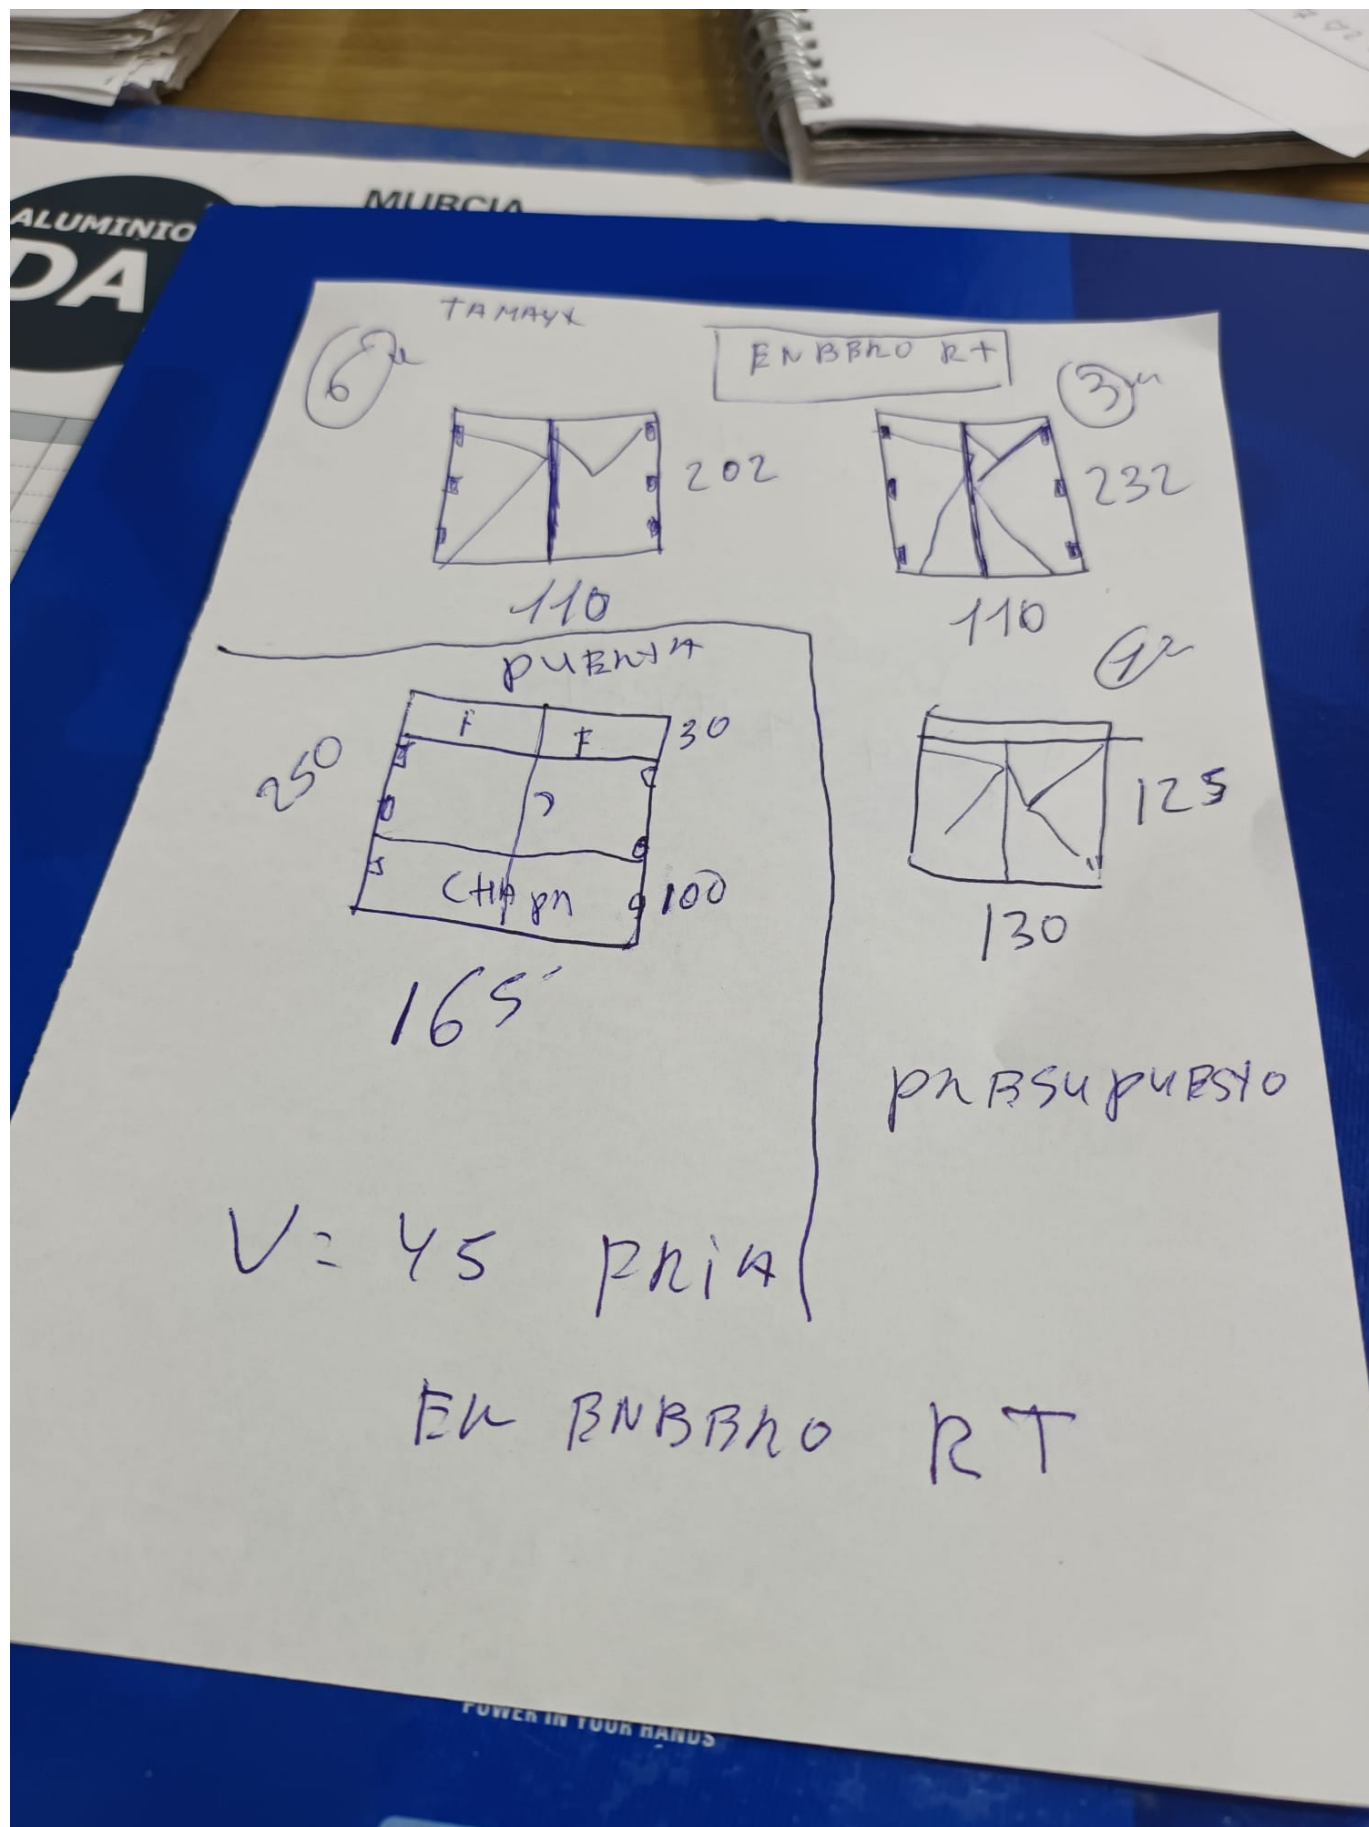 ALUMINIO
DA
MURCIA
TAMAYX
ENBBRO RT
6u
3u
202
232
110
110
PUERTA
F
F
30
250
CHAPA
100
165
125
130
PRESUPUESTO
V= 45 FRIA
EN ENBBRO RT
POWER IN YOUR HANDS